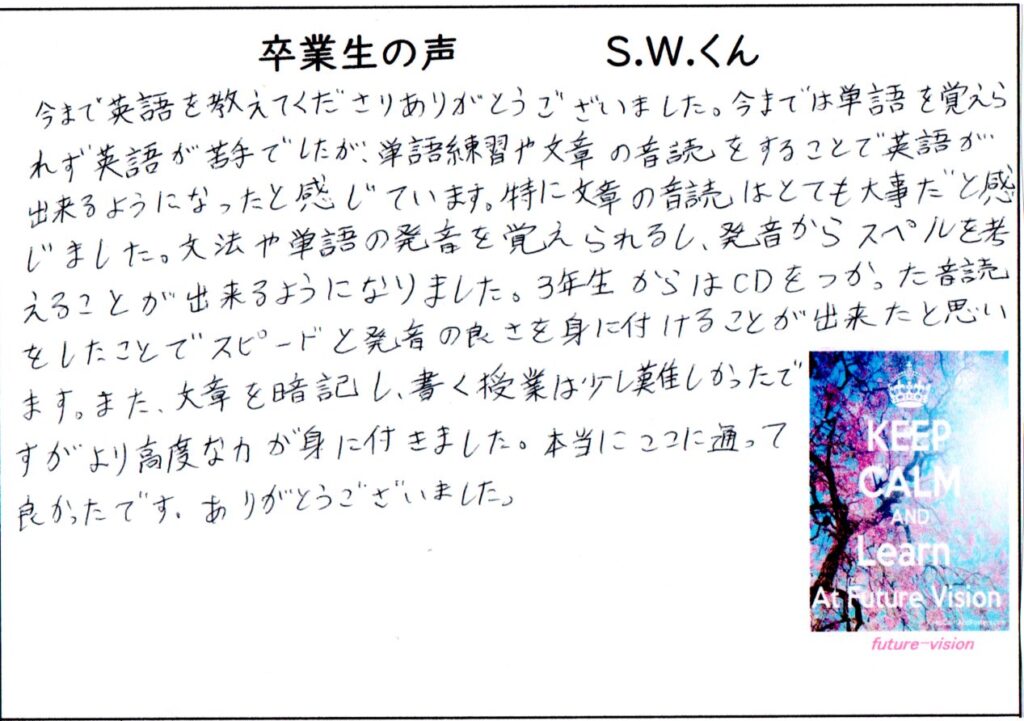 卒業生の声 S.W.くん
今まで英語を教えてくださりありがとうございました。今までは単語を覚えら
れず英語が苦手でしたが、単語練習や文章の音読をすることで英語が
出来るようになったと感じています。特に文章の音読はとても大事だと感
じました。文法や単語の発音を覚えられるし、発音からスペルを考
えることが出来るようになりました。3年生からはCDをつかった音読
をしたことでスピードと発音の良さを身に付けることが出来たと思い
ます。また、文章を暗記し、書く授業は少し難しかったで
すがより高度な力が身に付きました。本当にここに通って
良かったです。ありがとうございました。
KEEP
CALM
AND
Learn
At Future Vision
future-vision